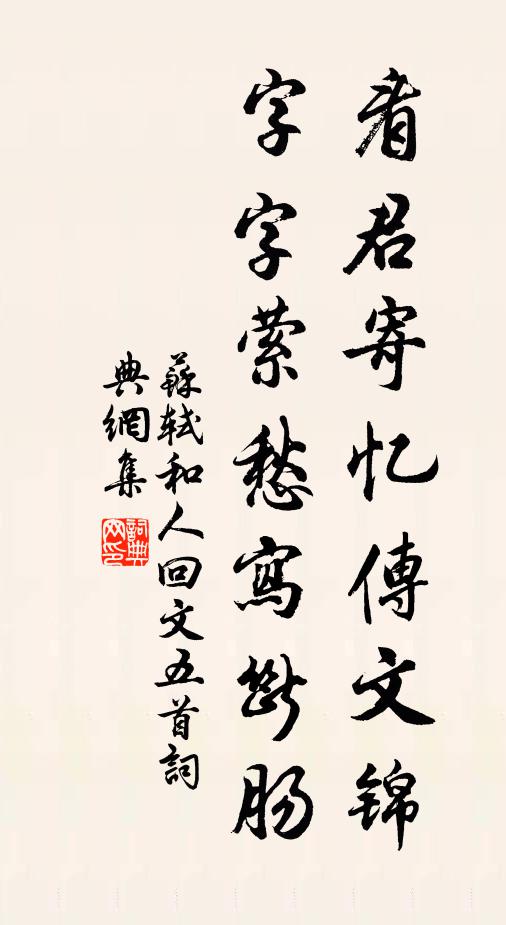 看君寄忆傳文錦
字字縈愁寫斷腸
蘇軾和人回文五首詞
典網集
詞典网印